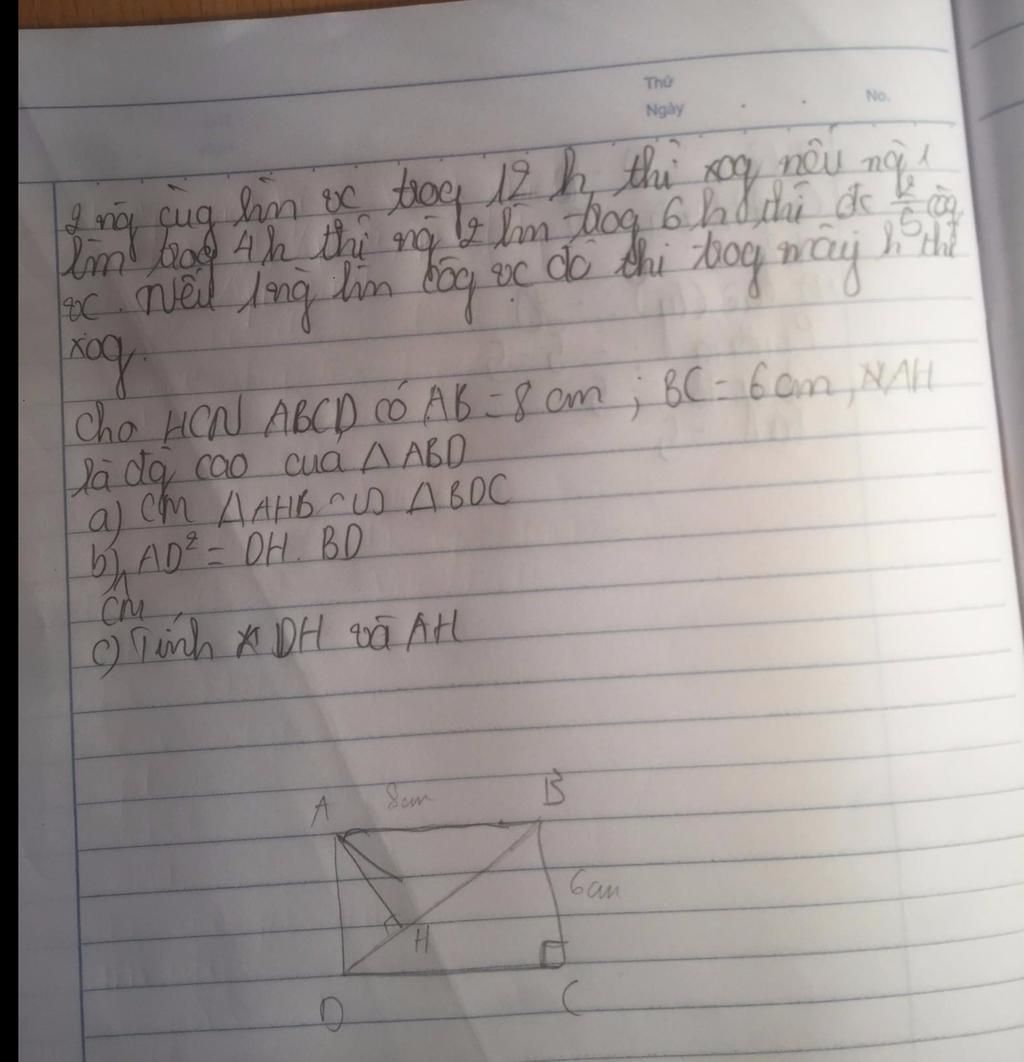 Thứ
Ngày . . No.
2 ng cùg làm vc trog 12 h thì xog nếu ng 1
làm trog 4h thì ng 2 làm trog 6 h thì đc 2/5 côg
vc. Nếu 1 ng làm côg vc đó thì trog mấy h thì
xog.
Cho HCN ABCD có AB = 8 cm ; BC = 6 cm, AH
là đg cao cua ΔABD
a) CM ΔAHB ∽ ΔBDC
b) AD² = DH. BD
CM
c) Tính DH và AH
A 8cm B
6cm
H
D C